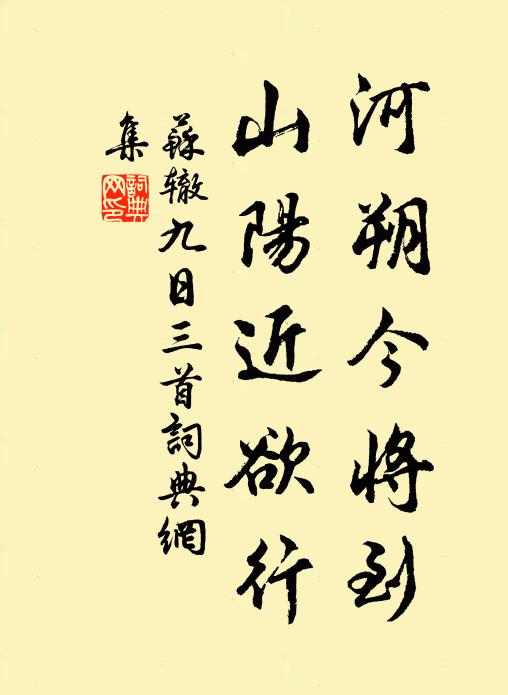 河朔今将到
山陽近欲行
蘇辙九日三首詞典網
集
詞典
网印